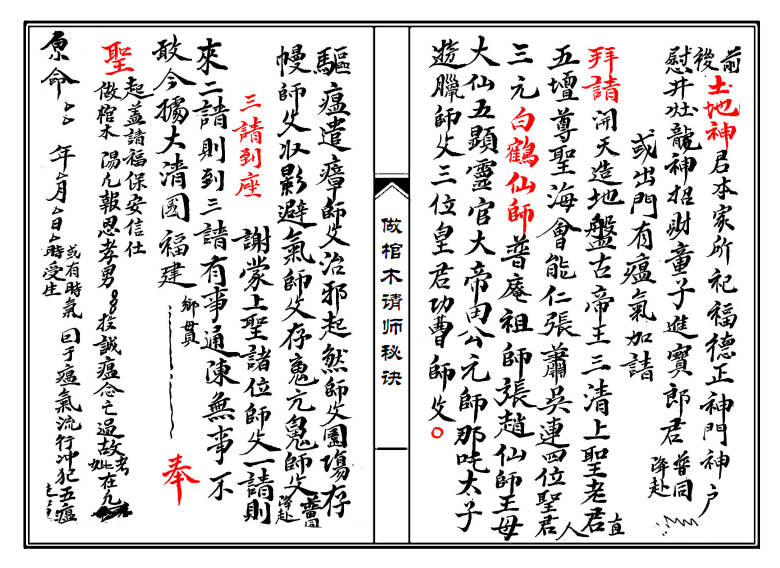 前後土地神君本家所祀福德正神門神户
慰井灶龍神招財童子進寶郎君普同降赴
或出門有瘟氣加請
拜請開天造地盤古帝王三清上聖老君直
五壇尊聖海會能仁張蕭吳連四位聖君人
三元白鶴仙師普庵祖師張趙仙師王母
大仙五顯靈官大帝田公元師那吒太子
遊臘師父三位皇君功曹師父
做棺木请师秘诀
驅瘟遣瘴師父治邪起煞師父園場存
幔師父收影避氣師父存鬼亢師父普同降赴
三請到座 謝蒙上聖諸位師父一請則
來二請則到三請有事通陳無事不
敢今據大清國福建鄉貫奉
聖起盖請福保安信仕
做棺木陽凡報恩孝男投誠瘟念亡過故考妣在九
原命年月日時受生或有時氣曰于瘟氣流行冲犯五瘟